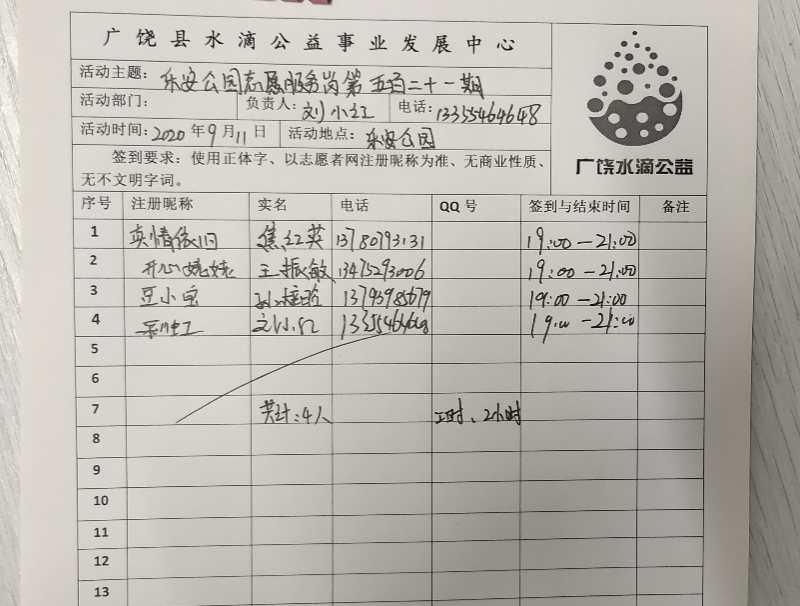 广饶县水滴公益事业发展中心
活动主题：乐安公园志愿服务岗第五百二十一期
活动部门： 负责人：刘小红 电话：13355464648
活动时间：2020年9月11日 活动地点：乐安公园
签到要求：使用正体字、以志愿者网注册昵称为准、无商业性质、
无不文明字词。
广饶水滴公益
序号 注册昵称 实名 电话 QQ号 签到与结束时间 备注
1 真情依旧 焦红英 13780793131 19:00—21:00
2 开心姥姥 王振敏 13475293006 19:00—21:00
3 豆小宝 19:00—21:00
4 13355464648 19:00—21:00
5
6
7 共计：4人 工时、2小时
8
9
10
11
12
13